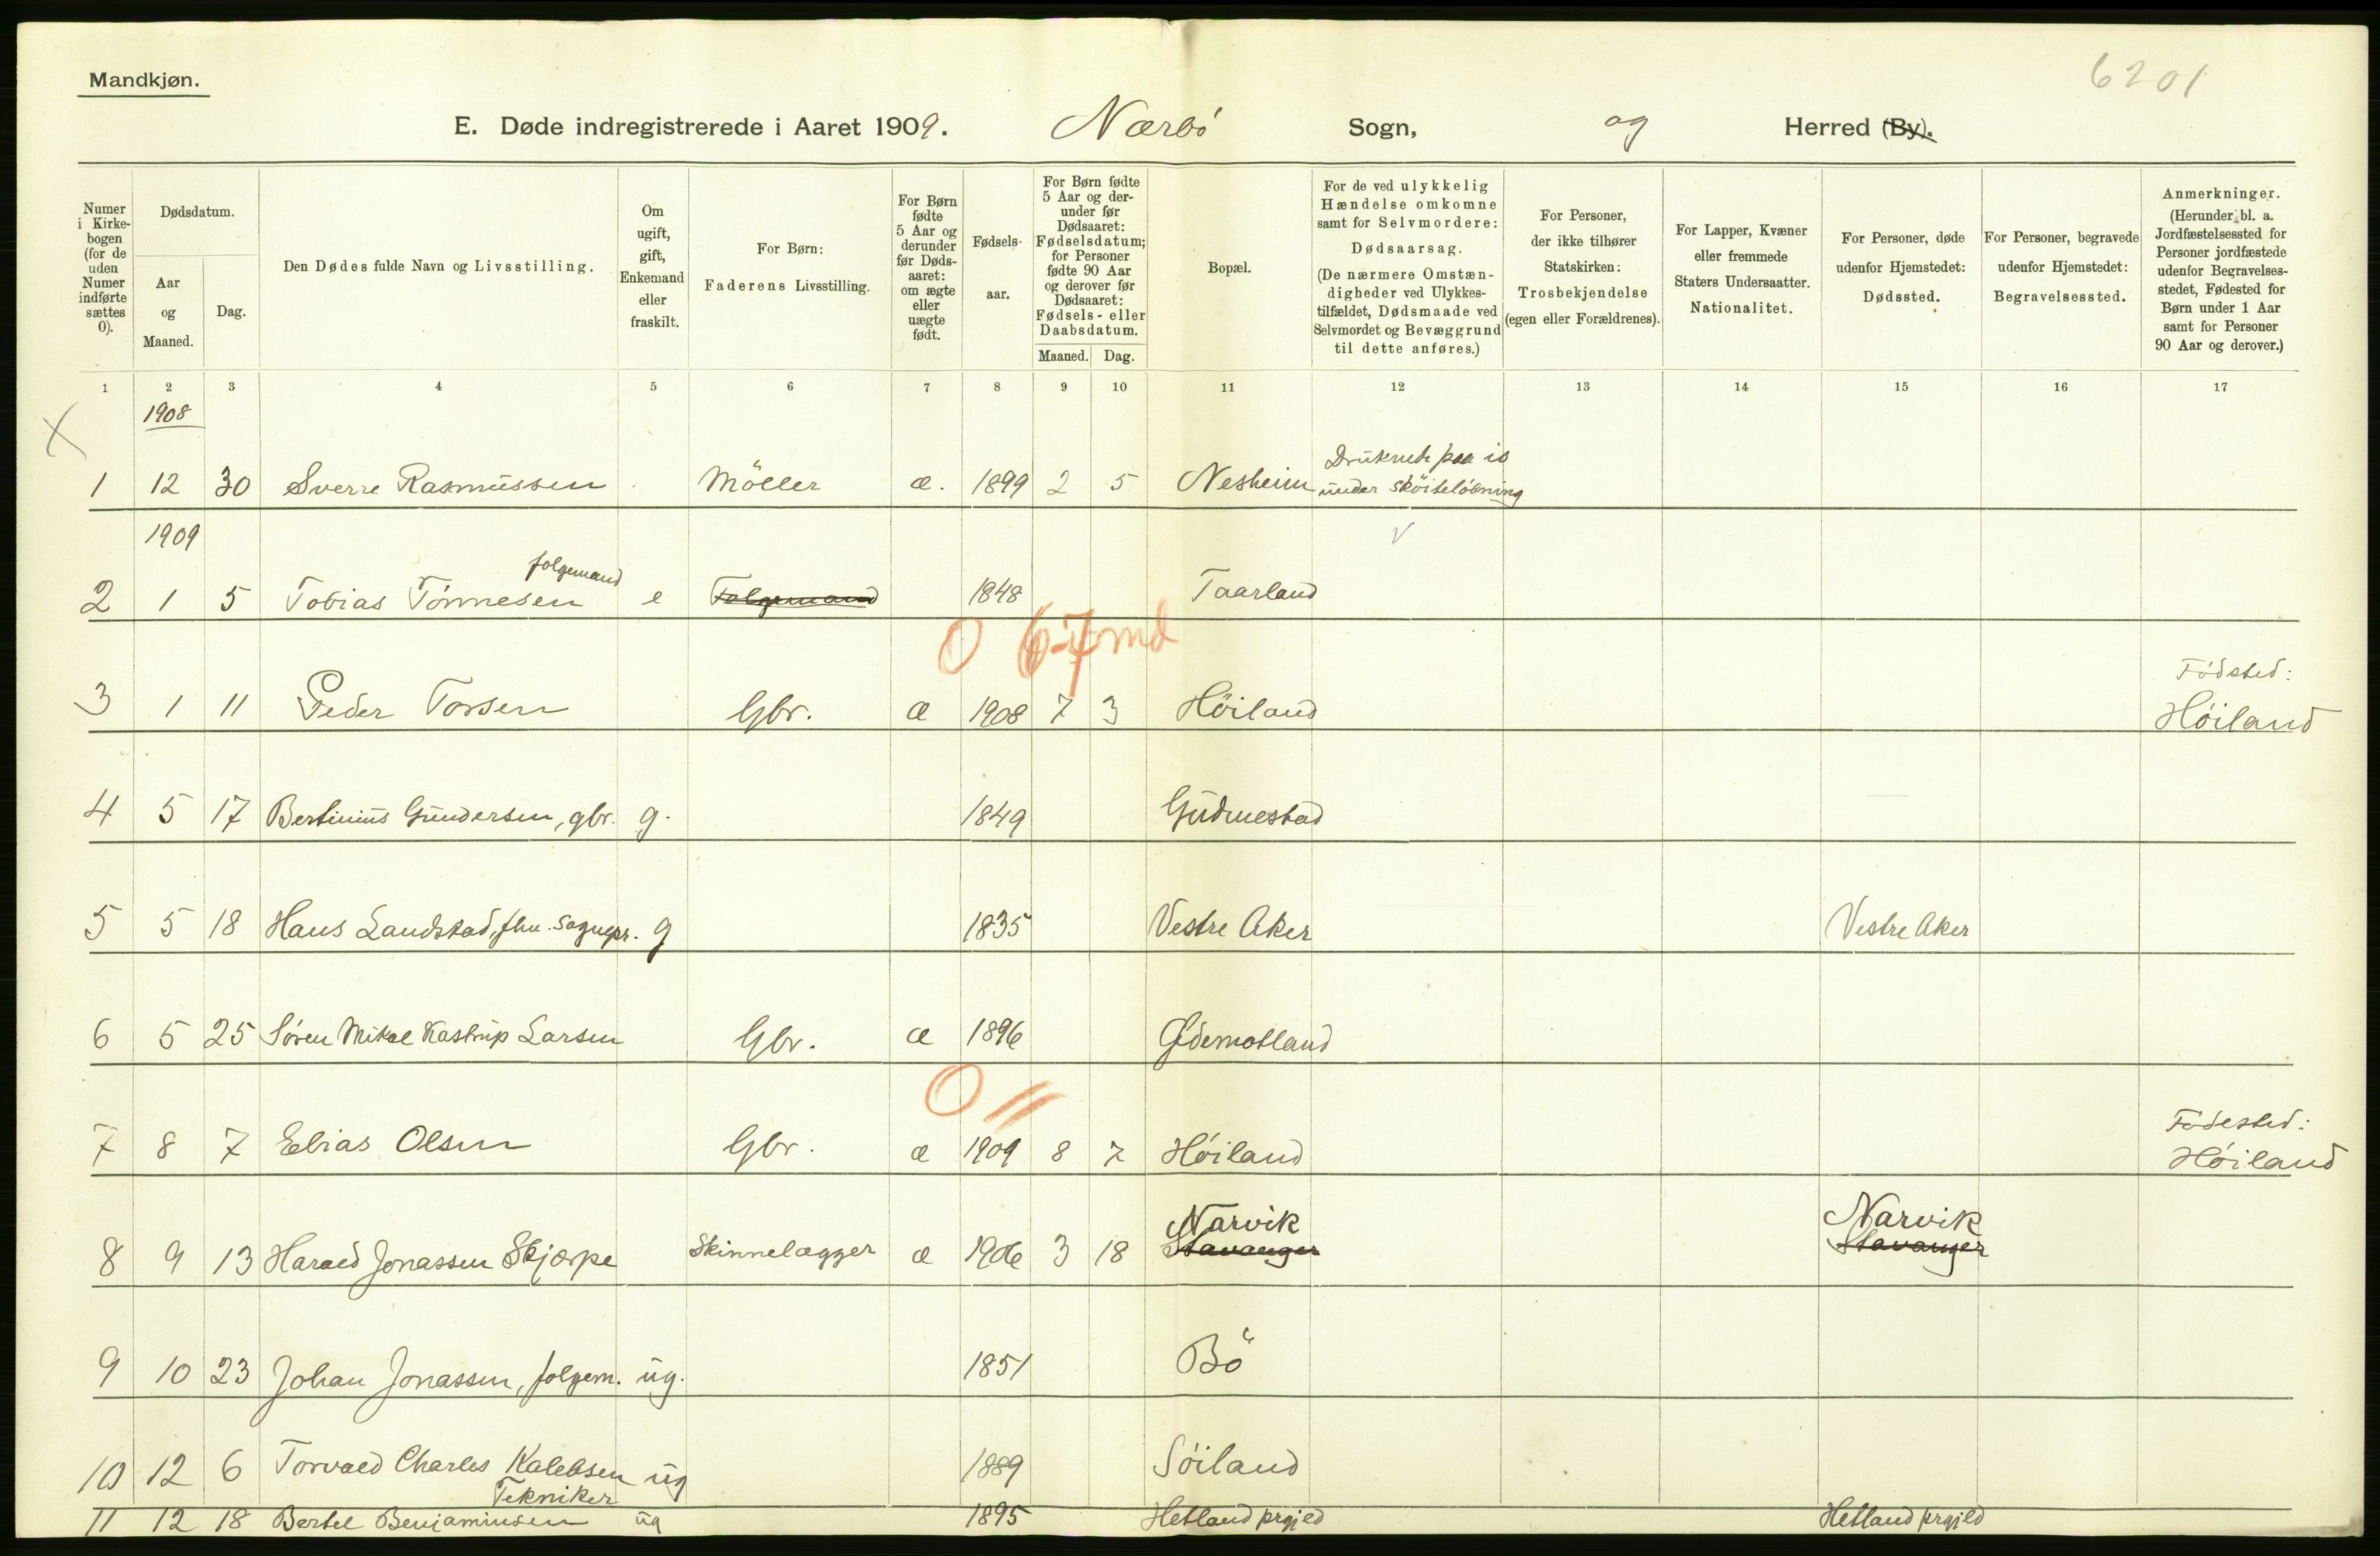 Mandkjøn.
6201
E. Døde indregistrerede i Aaret 1909. Nærbö Sogn, og Herred (By).
Numer i Kirkebogen (for de uden Numer indførte sættes 0).
Dødsdatum.
Aar og Maaned.
Dag.
Den Dødes fulde Navn og Livsstilling.
Om ugift, gift, Enkemand eller fraskilt.
For Børn: Faderens Livsstilling.
For Børn fødte 5 Aar og derunder før Dødsaaret: om ægte eller uægte født.
Fødselsaar.
For Børn fødte 5 Aar og derunder før Dødsaaret: Fødselsdatum; for Personer fødte 90 Aar og derover før Dødsaaret: Fødsels- eller Daabsdatum.
Maaned. Dag.
Bopæl.
For de ved ulykkelig Hændelse omkomne samt for Selvmordere: Dødsaarsag. (De nærmere Omstændigheder ved Ulykkestilfældet, Dødsmaade ved Selvmordet og Bevæggrund til dette anføres.)
For Personer, der ikke tilhører Statskirken: Trosbekjendelse (egen eller Forældrenes).
For Lapper, Kvæner eller fremmede Staters Undersaatter. Nationalitet.
For Personer, døde udenfor Hjemstedet: Dødssted.
For Personer, begravede udenfor Hjemstedet: Begravelsessted.
Anmerkninger. (Herunder bl. a. Jordfæstelsessted for Personer jordfæstede udenfor Begravelsesstedet, Fødested for Børn under 1 Aar samt for Personer 90 Aar og derover.)
1 2 3 4 5 6 7 8 9 10 11 12 13 14 15 16 17
1908
Druknede paa is
1 12 30 Sverre Rasmussen Möller æ. 1899 2 5 Nesheim under sköiteløbning
1909
folgemand
2 1 5 Tobias Tönnesen e Folgemand 1848 Taarland
0 6-7 md
Födsted:
3 1 11 Peder Torsen Gbr. æ 1908 7 3 Höiland Höiland
4 5 17 Bertinius Gundersen, gbr. g. 1849 Gudmestad
5 5 18 Hans Landstad, fhv. sognepr. g 1835 Vestre Aker Vestre Aker
6 5 25 Sören Mikal Kastrup Larsen Gbr. æ 1896 Ödemotland
0 11
Födested:
7 8 7 Elias Olsen Gbr. æ 1909 8 7 Höiland Höiland
Narvik Narvik
8 9 13 Harald Jonassen Skjærpe Skinnelægger æ 1906 3 18 Stavanger Stavanger
9 10 23 Johan Jonassen, folgem. ug. 1851 Bö
10 12 6 Torvald Charles Kalebsen ug 1889 Söiland
Tekniker
11 12 18 Bertel Benjaminsen ug 1895 Hetland prgjeld Hetland prgjeld